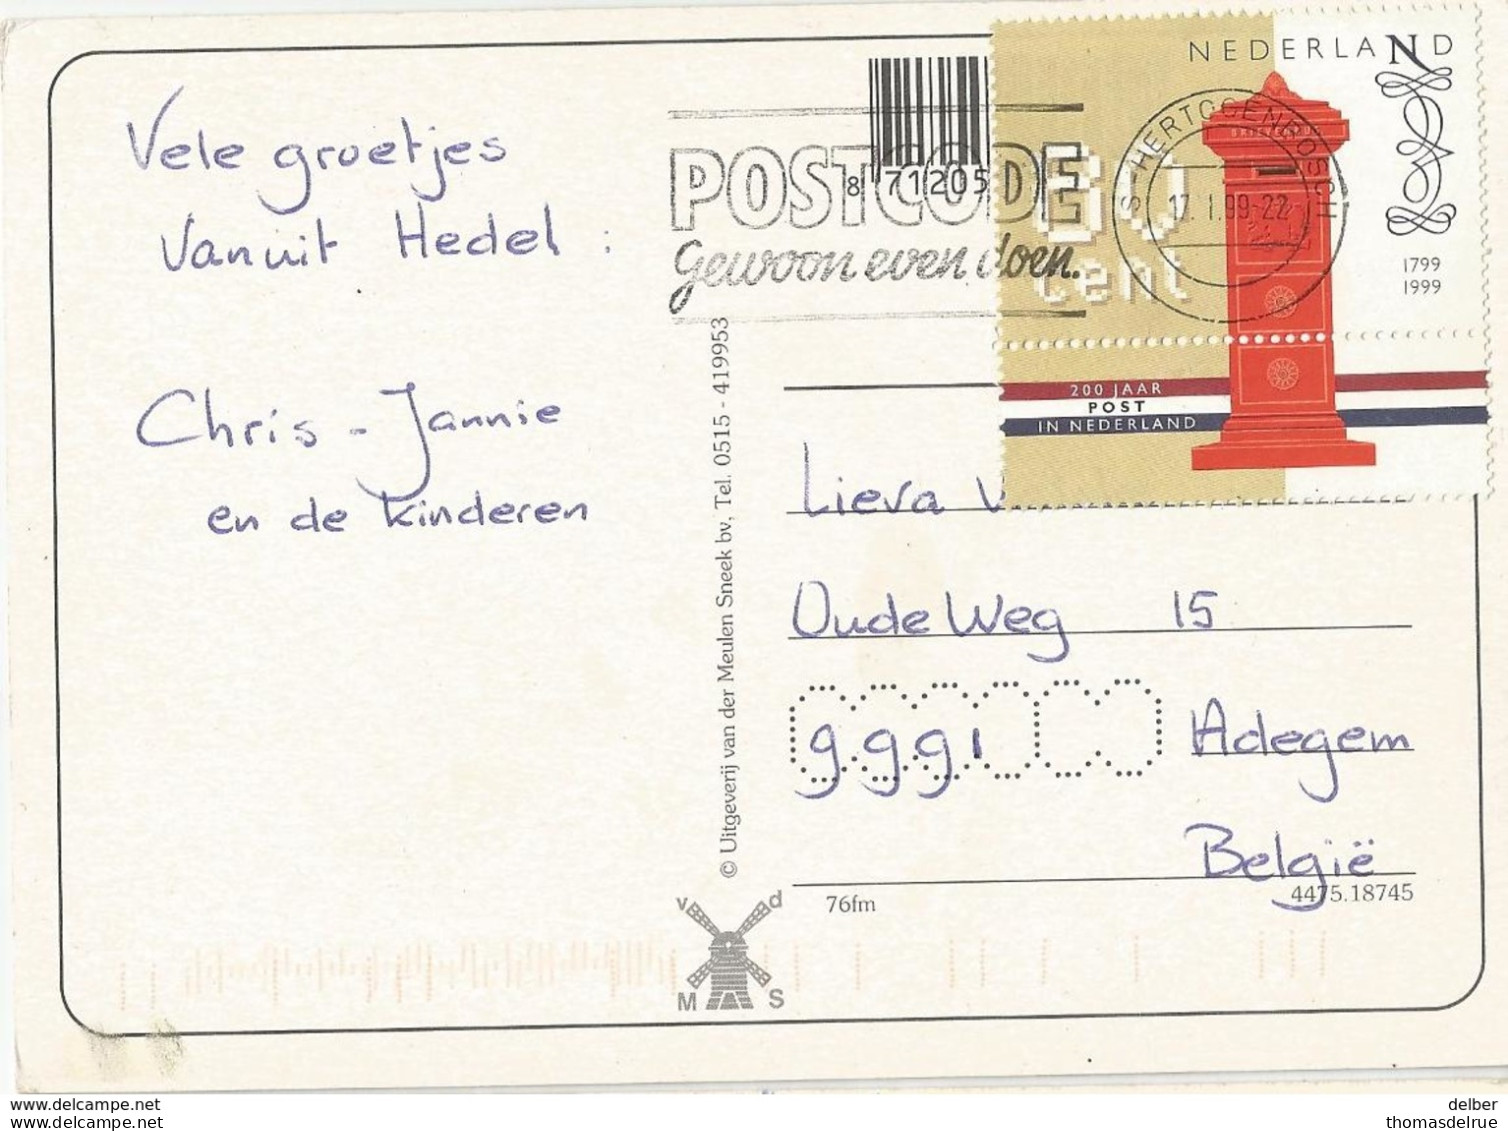 Vele groetjes
vanuit Hedel :
Chris - Jannie
en de kinderen
© Uitgeverij van der Meulen Sneek bv, Tel. 0515 - 419953
v d
M S
8 71205
POSTCODE
Gewoon even doen.
NEDERLAND
80
cent
'S-HERTOGENBOSCH
17. I.99-22
1799
1999
200 JAAR
POST
IN NEDERLAND
Lieva
Oude Weg 15
9991 Adegem
België
76fm 4475.18745
www.delcampe.net delber
www.delcampe.net thomasdelrue